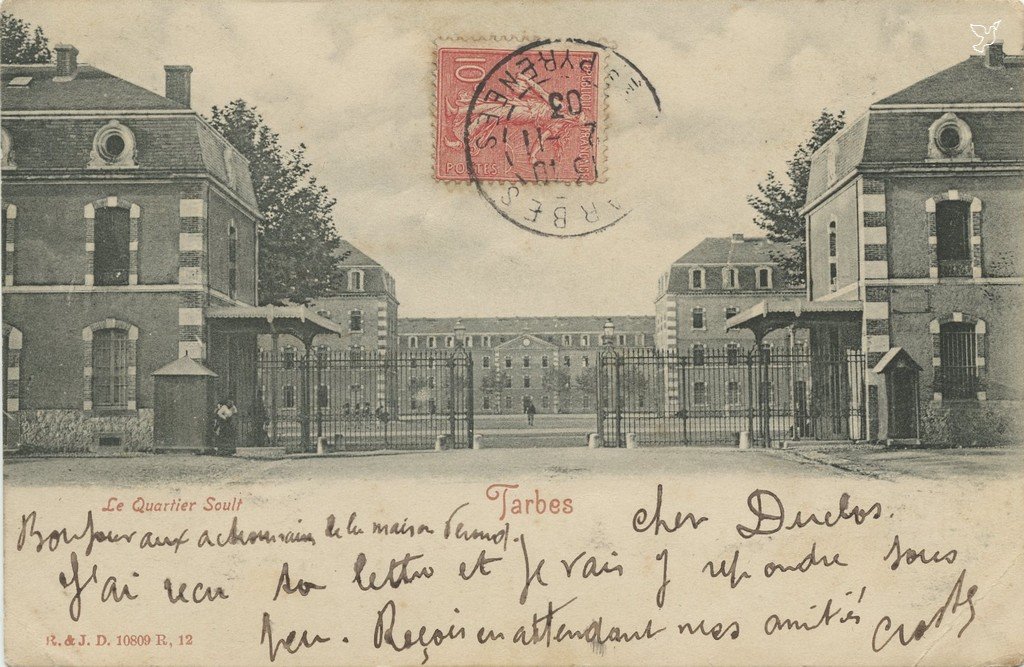 10
POSTES
PYRENEES
TARBES
11
03
Le Quartier Soult
Tarbes
cher Duclos.
Bonjour aux actionnaires de la maison
J'ai reçu ta lettre et je vais y repondre sous
peu. Reçois en attendant mes amitiés
R. & J. D. 10809 R, 12